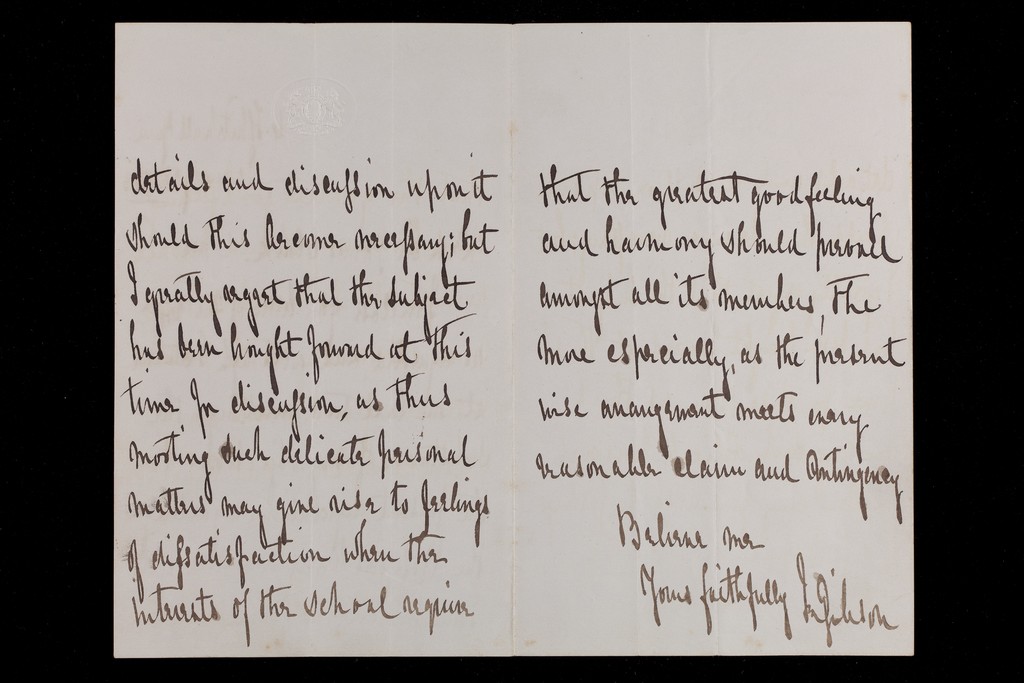 details and discussion upon it
should this become necessary; but
I greatly regret that the subject
has been brought forward at this
time for discussion, as thus
mooting such delicate personal
matters may give rise to feelings
of dissatisfaction when the
interests of the school require
that the greatest good feeling
and harmony should prevail
amongst all its members, the
more especially, as the present
wise arrangement meets every
reasonable claim and contingency
Believe me
Yours faithfully